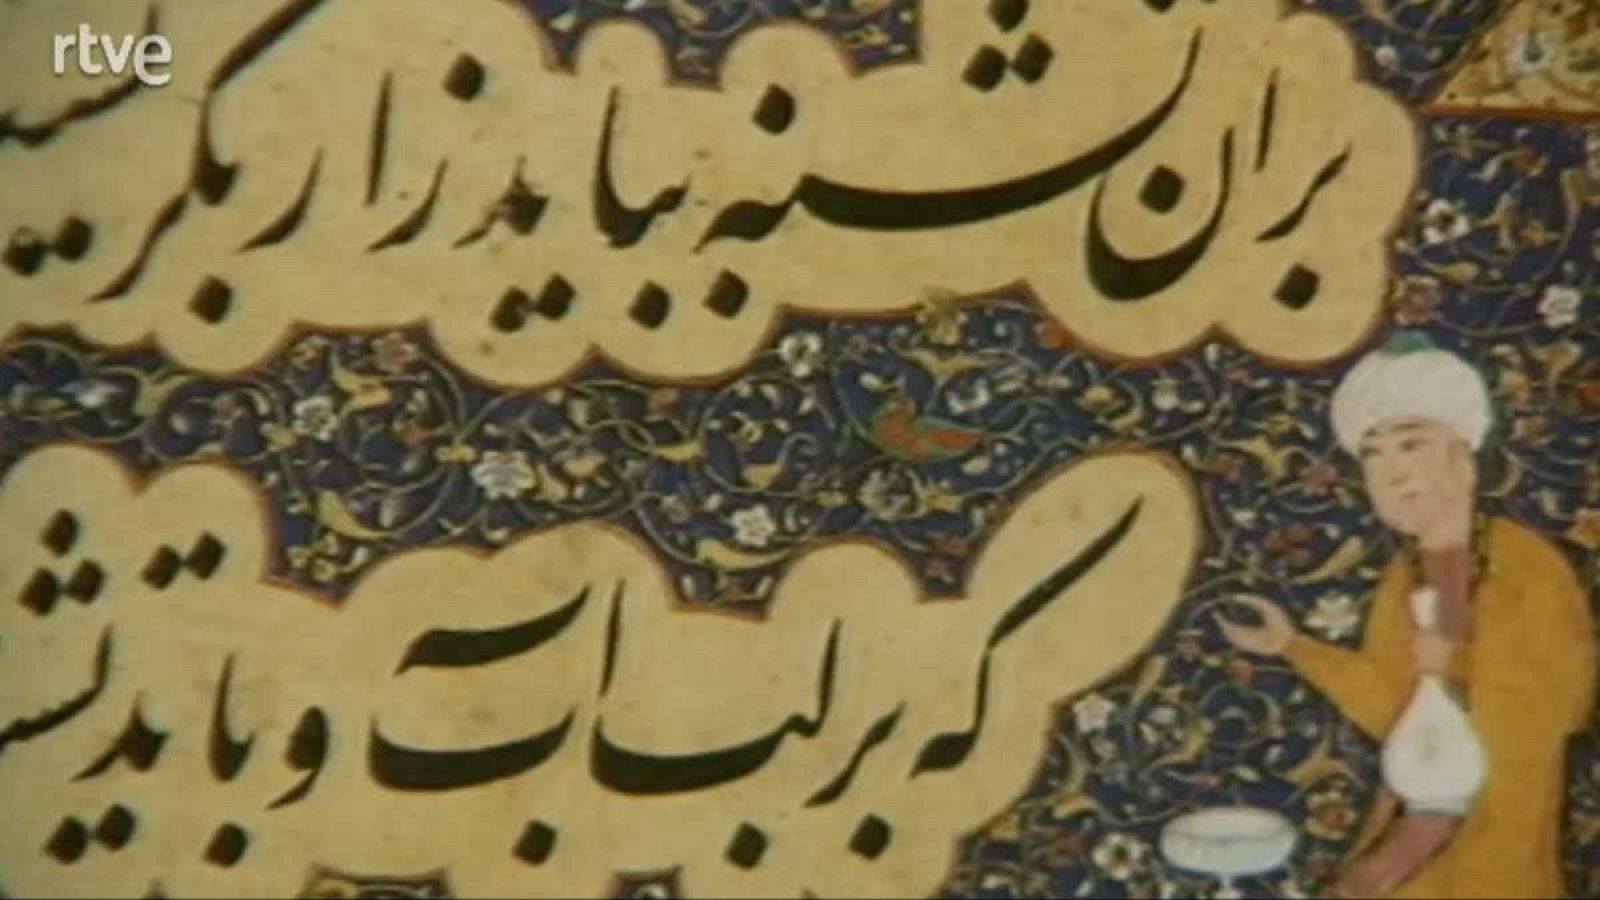 rtve
بران تشنه بباید زار بگریست
که بر لب آب و باید تشنه